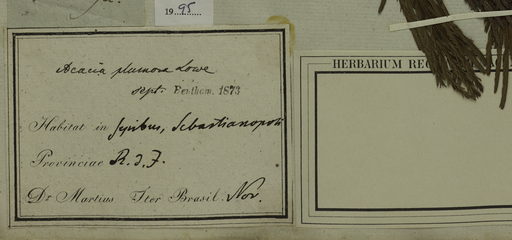 19 95
Acacia plumosa Lowe
sept. Benthom. 1873
Habitat in sepibus, Sebastianopoli
Provinciae R. d. J.
Dr Martius Iter Brasil. Nov.
HERBARIUM REG